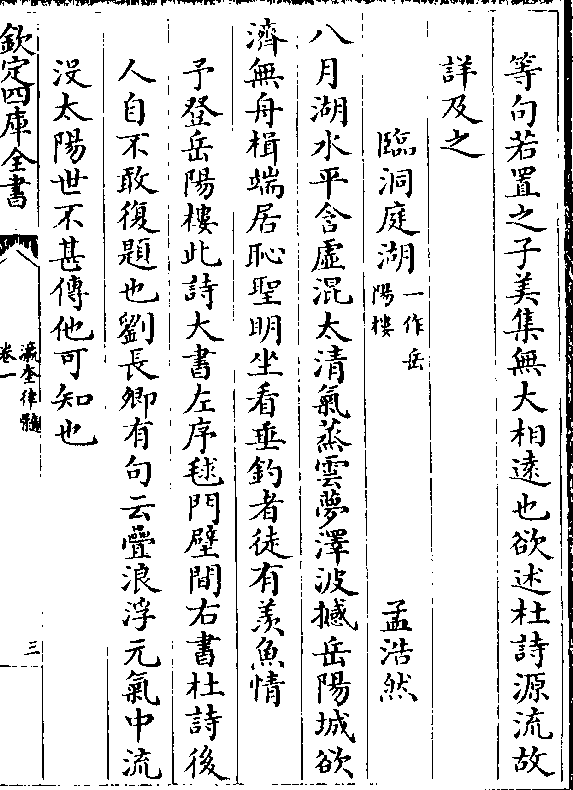 等句若置之子美集無大相遠也欲述杜詩源流故
詳及之
臨洞庭湖一作岳陽樓 孟浩然
八月湖水平含虛混太清氣蒸雲夢澤波撼岳陽城欲
濟無舟楫端居恥聖明坐看垂釣者徒有羨魚情
予登岳陽樓此詩大書左序毬門壁間右書杜詩後
人自不敢復題也劉長卿有句云疊浪浮元氣中流
没太陽世不甚傳他可知也
欽定四庫全書
瀛奎律髓
卷一
三